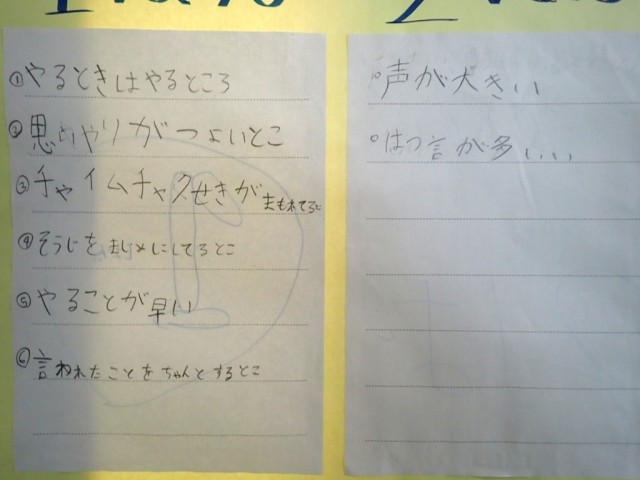 ①やるときはやるところ
②思いやりがつよいとこ
③チャイムチャクせきがまもれてると
④そうじをまじメにしてるとこ
⑤やることが早い
⑥言われたことをちゃんとするとこ
°声が大きい
°はつ言が多いい